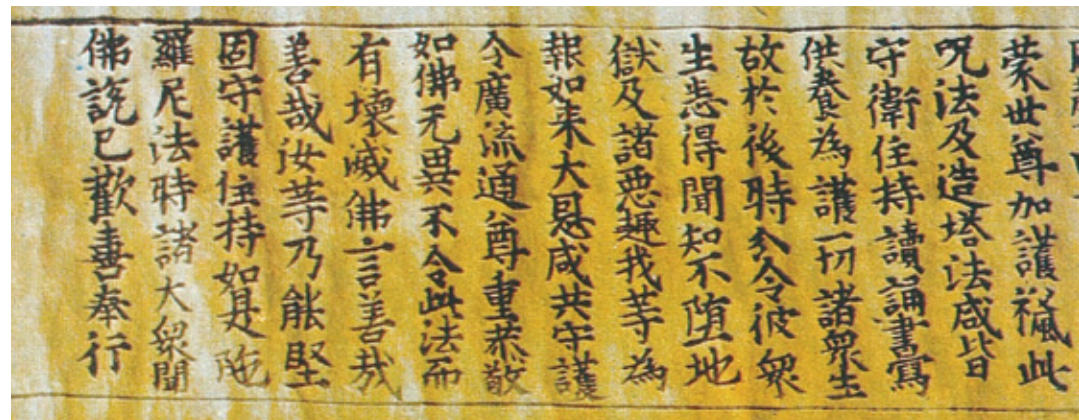 蒙世尊加護𥠢此
呪法及造塔法咸皆
守衛住持讀誦書寫
供養為護一切諸衆生
故於後時分令彼衆
生悉得聞知不墮地
獄及諸惡趣我等為
報如来大恩咸共守護
令廣流通尊重恭敬
如佛无異不令此法而
有壞滅佛言善哉
善哉汝等乃能堅
固守護住持如是陁
羅尼法時諸大衆聞
佛說已歡喜奉行